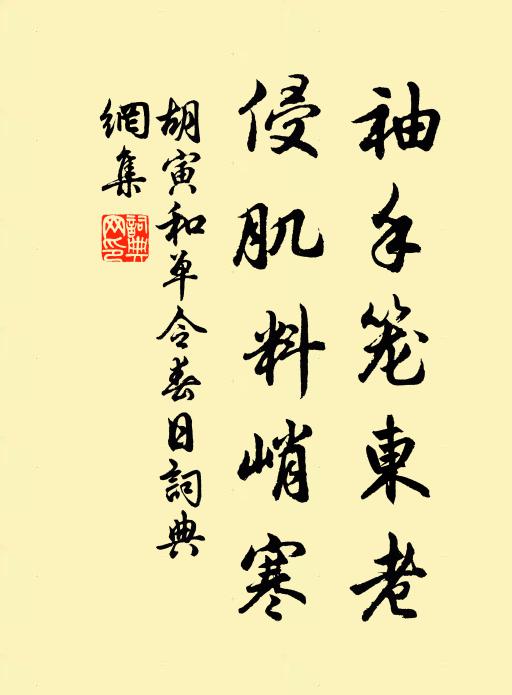 袖手笼東老
侵肌料峭寒
胡寅和单令春日詞典
網集
詞典網印